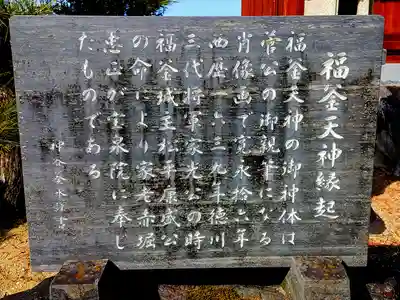 福釜天神縁起
福釜天神の御神体は
菅公の御親筆になる
肖像画で寛永拾六年
西歴一六三九年徳川
三代将軍家光公の時
福釜城主松平康盛公
の命により家老赤堀
恵正が宝泉院に奉じ
たものである